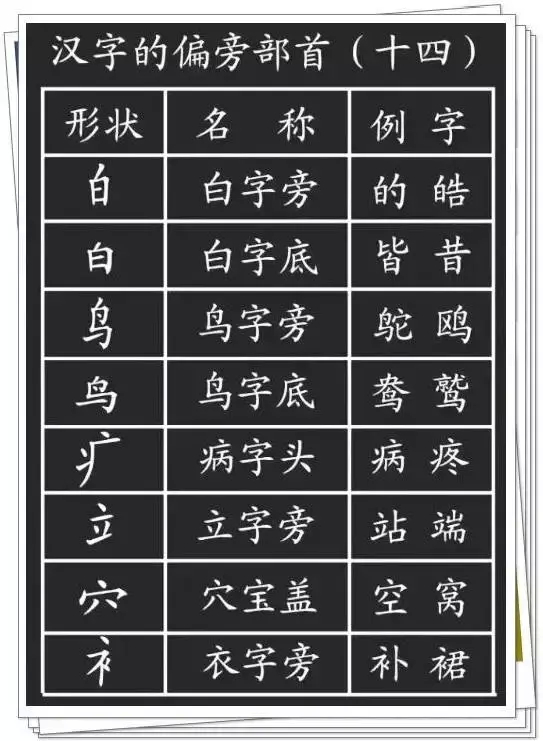 汉字的偏旁部首（十四）
形状 名 称 例 字
白 白字旁 的 皓
白 白字底 皆 昔
鸟 鸟字旁 鸵 鸥
鸟 鸟字底 鸯 鹫
疒 病字头 病 疼
立 立字旁 站 端
穴 穴宝盖 空 窝
衤 衣字旁 补 裙